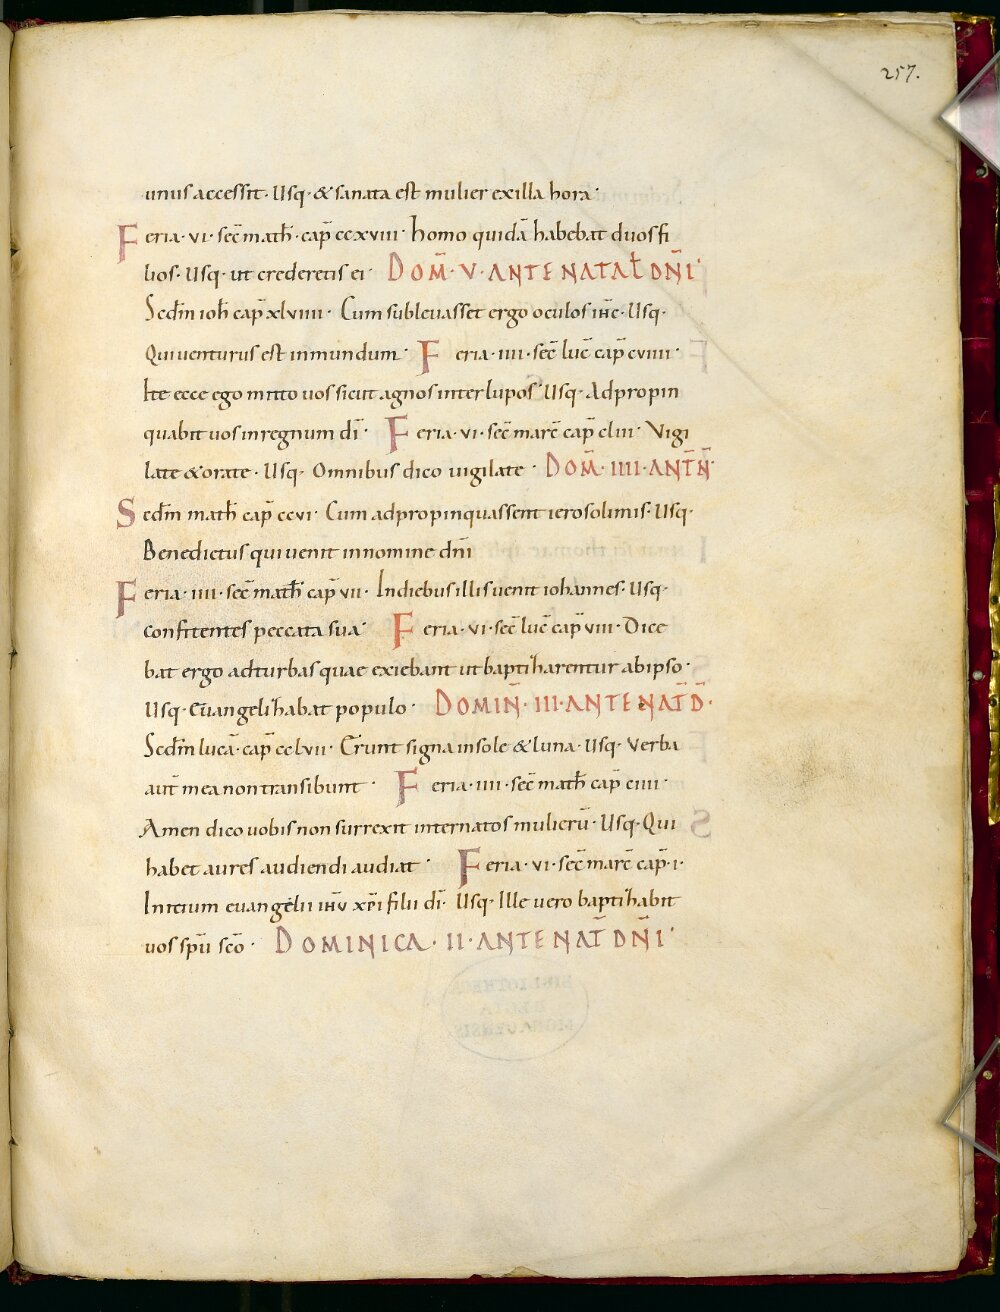 257.
unus accessit· Usq· & sanata est mulier exilla hora·
Feria· vi· sec̄ math̄· cap̄ ccxviii· homo quidā habebat duos fi
lios· Usq· ut crederetis ei· DOM̄· V· ANTE NATAŁ DN̄I·
Secd̄m ioh̄ cap̄ xlviiii· Cum subleuasset ergo oculos ih̄c· Usq·
Qui uenturus est inmundum· Feria· iiii· sec̄ luc̄ cap̄ cviiii·
Ite ecce ego mitto uos sicut agnos inter lupos· Usq· Adpropin
quabit uos inregnum dī· Feria· vi· sec̄ marc̄ cap̄ cliii· Vigi
late & orate· Usq· Omnibus dico uigilate· DOM̄· IIII· ANT̄ N̄·
Secd̄m math̄ cap̄ ccvi· Cum adpropinquassent ierosolimis· Usq·
Benedictus qui uenit innomine dn̄i
Feria· iiii· sec̄ math̄ cap̄ vii· Indiebus illis uenit iohannes· Usq·
confitentes peccata sua· Feria· vi· sec̄ luc̄ cap̄ viii· Dice
bat ergo adturbas quae exiebant ut baptiharentur abipso·
Usq· Euangelihabat populo· DOMIN̄· III· ANTE NAT̄ D̄·
Secd̄m lucā· cap̄ cclvii· Erunt signa insole & luna· Usq· Verba
aut̄ mea non transibunt· Feria· iiii· sec̄ math̄ cap̄ ciiii·
Amen dico uobis non surrexit internatos mulierū· Usq· Qui
habet aures audiendi audiat· Feria· vi· sec̄ marc̄ cap̄· i·
Initium euangelii ih̄u xp̄i filii dī· Usq· Ille uero baptihabit
uos sp̄u sc̄o· DOMINICA· II· ANTE NAT̄ DN̄I·